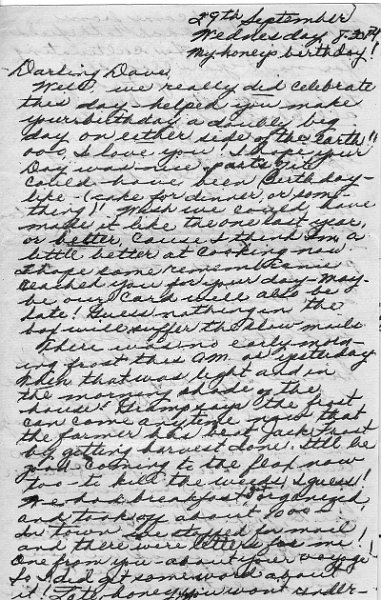 29th September
Wednesday 8:30 PM
My honey's birthday!
Darling Dave,
Well, we really did celebrate
this day - helped you make
your birthday a doubly big
day on either side of the "earth"
ooo, I love you! I hope your
Day was nice - parts of it
could have been Birthday-
like - (cake for dinner, or some
thing)! Wish we could have
made it like the one last year,
or better, cause I think I'm a
little better at cooking now.
I hope some remembrance
reached you for your day - May-
be our card will also be
late! Guess nothing in the
box will suffer the slow mail.
There was no early morn-
ing frost this AM. as yesterday
when that was light and in
the morning shade of the
house. Gramp says "the frost
can come anytime - now that
the farmer has beat Jack Frost
by getting harvest done. It'll be
good coming to the flax now
too - to kill the weeds, I guess!
We had breakfast, organized,
and took off about
for town. We stopped for mail!
and there were letters for me!
One from you - about your voyage
So I did get some word about
it! Late, honey, you won't under-